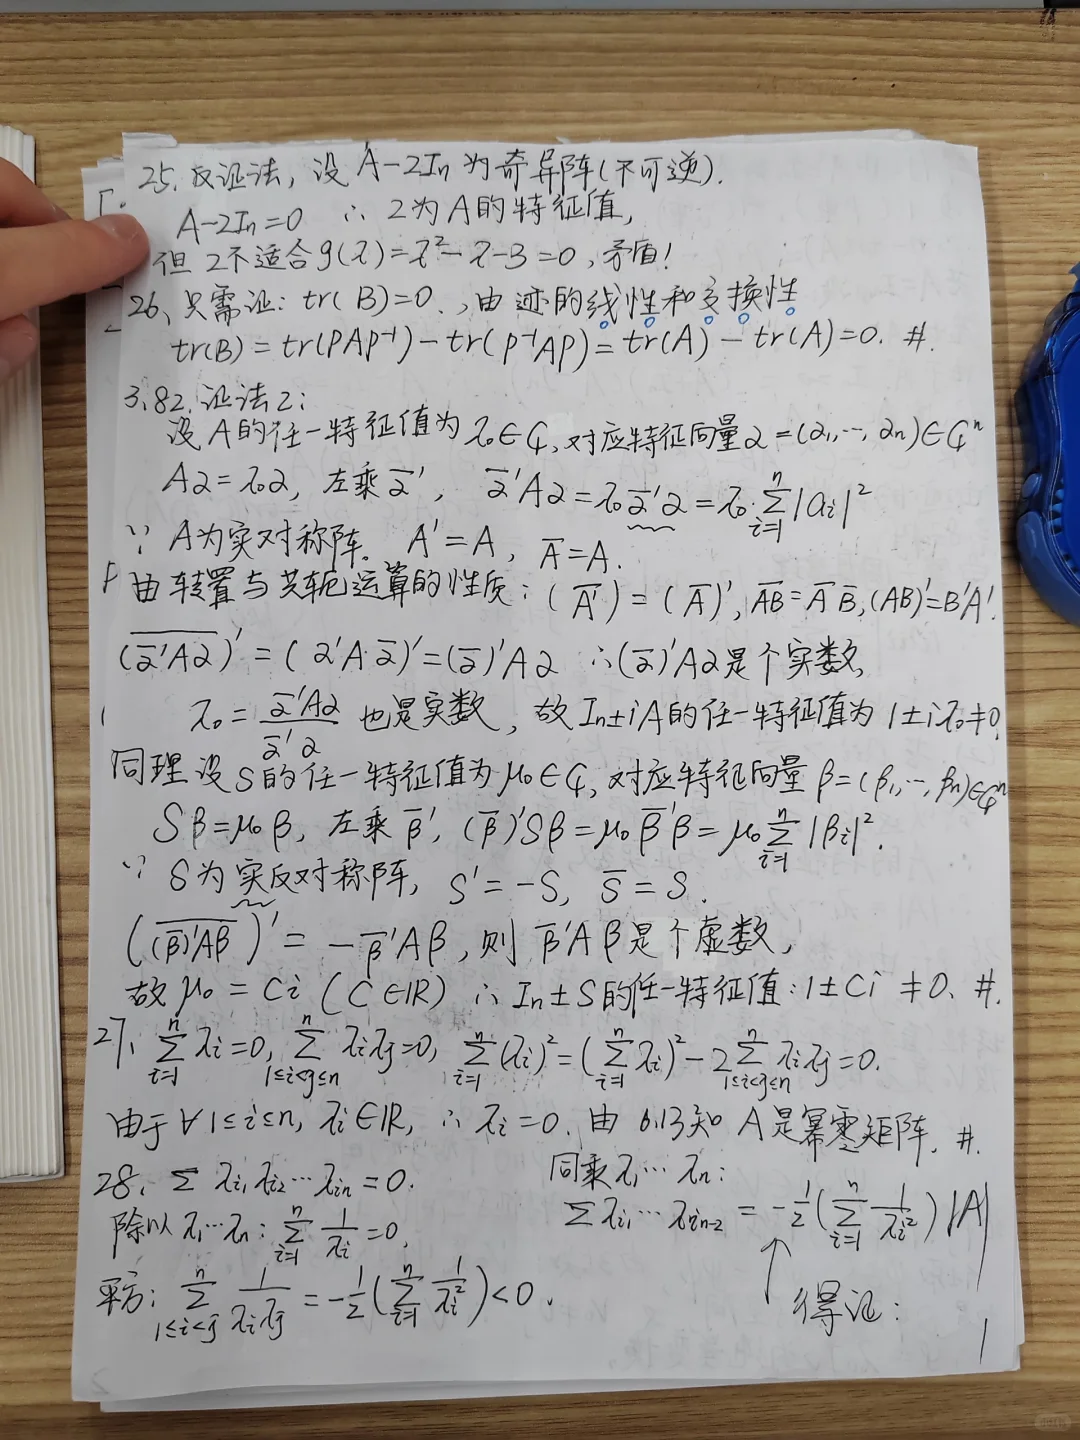 25. 反证法, 设 A-2In 为奇异阵(不可逆).
A-2In=0 ∴ 2为A的特征值,
但 2不适合 g(λ)=λ²-λ-3=0, 矛盾!
26、只需证: tr(B)=0., 由迹的线性和交换性
tr(B)=tr(PAP⁻¹)-tr(P⁻¹AP)=tr(A)-tr(A)=0. #.
3.82. 证法2:
设A的任一特征值为 λ₀∈ℂ, 对应特征向量 α=(α₁,…, αn)∈ℂⁿ
Aα=λ₀α, 左乘 α̅', α̅'Aα=λ₀α̅'α=λ₀·∑ⁿᵢ₌₁|aᵢ|²
∵ A为实对称阵. A'=A, A̅=A.
由转置与共轭运算的性质: (A̅'̅)=(A̅)', A̅B̅=A̅ B̅, (AB)'=B'A'.
(α̅'Aα)̅'=(α'A·α̅)'=(α̅)'Aα ∴(α̅)'Aα是个实数,
λ₀=α̅'Aα/α̅'α 也是实数, 故 In±iA的任一特征值为 1±iλ₀≠0.
同理设S的任一特征值为 μ₀∈ℂ, 对应特征向量 β=(β₁,…, βn)∈ℂⁿ
Sβ=μ₀β, 左乘 β̅', (β̅)'Sβ=μ₀β̅'β=μ₀∑ⁿᵢ₌₁|βᵢ|².
∵ S为实反对称阵, S'=-S, S̅=S.
((β̅)'Aβ)̅'=-β̅'Aβ, 则 β̅'Aβ是个虚数,
故 μ₀=Ci (C∈IR) ∴ In±S的任一特征值: 1±Ci≠0. #.
27、∑ⁿᵢ₌₁λᵢ=0, ∑ⁿ1≤i<j≤n λᵢλⱼ=0, ∑ⁿᵢ₌₁(λᵢ)²=(∑ⁿᵢ₌₁λᵢ)²-2∑ⁿ1≤i<j≤n λᵢλⱼ=0.
由于∀1≤i≤n, λᵢ∈IR, ∴ λᵢ=0. 由 6.13知 A是幂零矩阵. #.
28、∑ λi₁λi₂…λin=0.
除以 λ₁…λn: ∑ⁿᵢ₌₁ 1/λᵢ=0,
平方: ∑ⁿ1≤i<j 1/λᵢλⱼ=-1/2(∑ⁿᵢ₌₁ 1/λᵢ²)<0.
同乘 λ₁…λn:
∑λi₁…λin-2=-1/2(∑ⁿᵢ₌₁ 1/λᵢ²)|A|
得证:
1